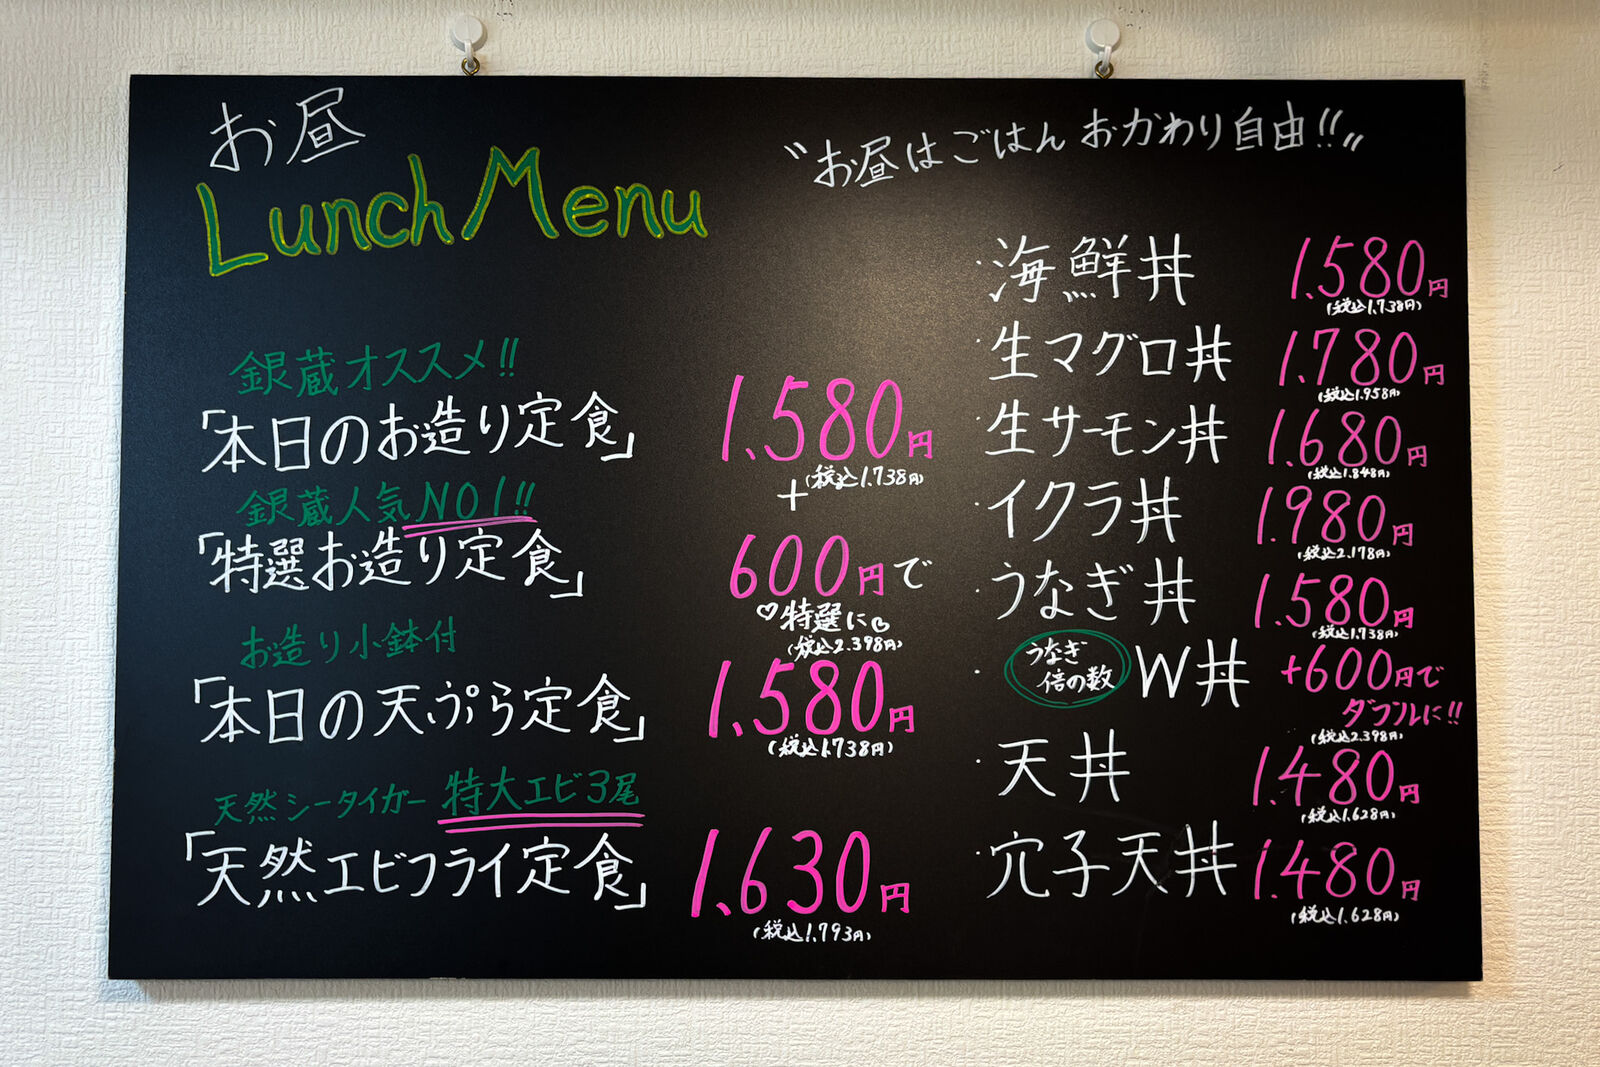 お昼
Lunch Menu
〝お昼はごはんおかわり自由!!〟
銀蔵オススメ!!
「本日のお造り定食」 1.580円
(税込1.738円)
銀蔵人気NO1!!
+
「特選お造り定食」 600円で
♡特選に♡
(税込2.398円)
お造り小鉢付
「本日の天ぷら定食」 1.580円
(税込1.738円)
天然シータイガー 特大エビ3尾
「天然エビフライ定食」 1.630円
(税込1.793円)
・海鮮丼 1.580円
(税込1.738円)
・生マグロ丼 1.780円
(税込1.958円)
・生サーモン丼 1.680円
(税込1.848円)
・イクラ丼 1.980円
(税込2.178円)
・うなぎ丼 1.580円
(税込1.738円)
・うなぎ倍の数 W丼 +600円で
ダブルに!!
(税込2.398円)
・天丼 1.480円
(税込1.628円)
・穴子天丼 1.480円
(税込1.628円)